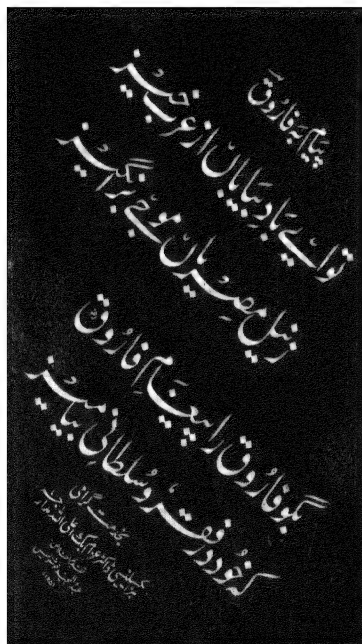 پیام بہ فاروق
تو اے بادِ بیاباں از عرب خیز
ز نیلِ مصریاں موجے برانگیز
بگو فاروق را پیغامِ فاروق
کہ خود در فقر و سلطانی بیامیز
بخدمت گرامی